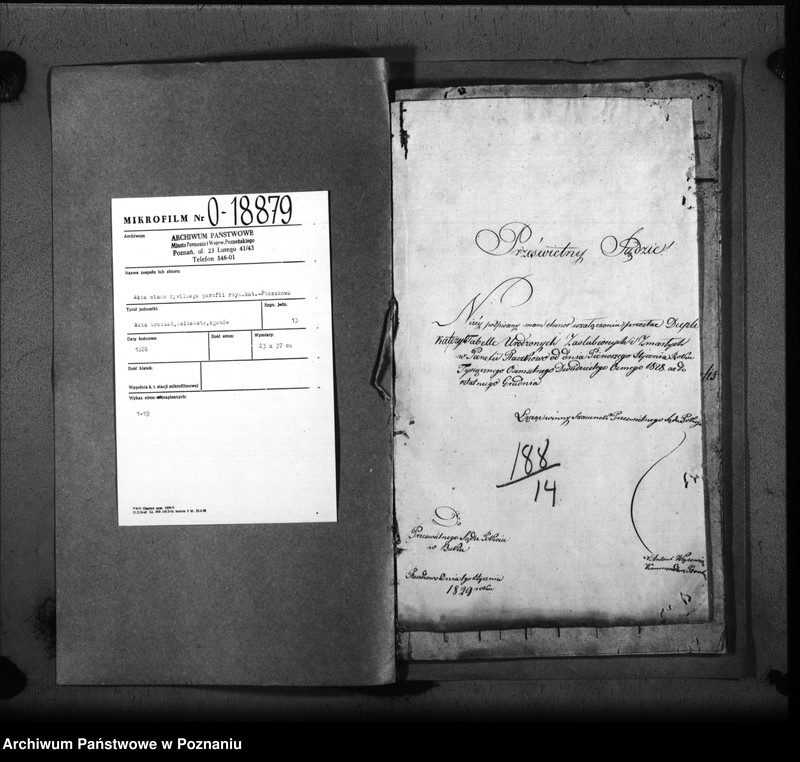 MIKROFILM Nr 0-18879
Archiwum
ARCHIWUM PAŃSTWOWE
Miasta Poznania i Wojew. Poznańskiego
Poznań, ul 23 Lutego 41/43
Telefon 546-01
Nazwa zespołu lub zbioru:
Akta stanu cywilnego parafii rzym.kat.-Ptaszkowo
Tytuł jednostki
Sygn. jedn.
Akta urodzeń, małżeństw, zgonów
13
Daty końcowe:
Ilość stron:
Wymiary:
1828
23 x 37 cm
Ilość klatek:
Wypełnia k. t. stacji mikrofilmowej
Wykaz stron niezapisanych:
1-19
Prześwietny Sądzie
Niżej podpisany mam honor w załączeniu przesłać Duple
Tabelle Urodzonych Zaślubionych i Zmarłych
w Parafii Ptaszkowo od dnia Pierwszego Stycznia Roku
Tysiącznego Ośmsetnego Dwudziestego Osmego 1828 aż do
ostatniego Grudnia
Szacunek Prześwietnego Sądu
188
14
/13
Do
Prześwietnego Sądu Pokoiu
w Buku
Stycznia
1829 roku